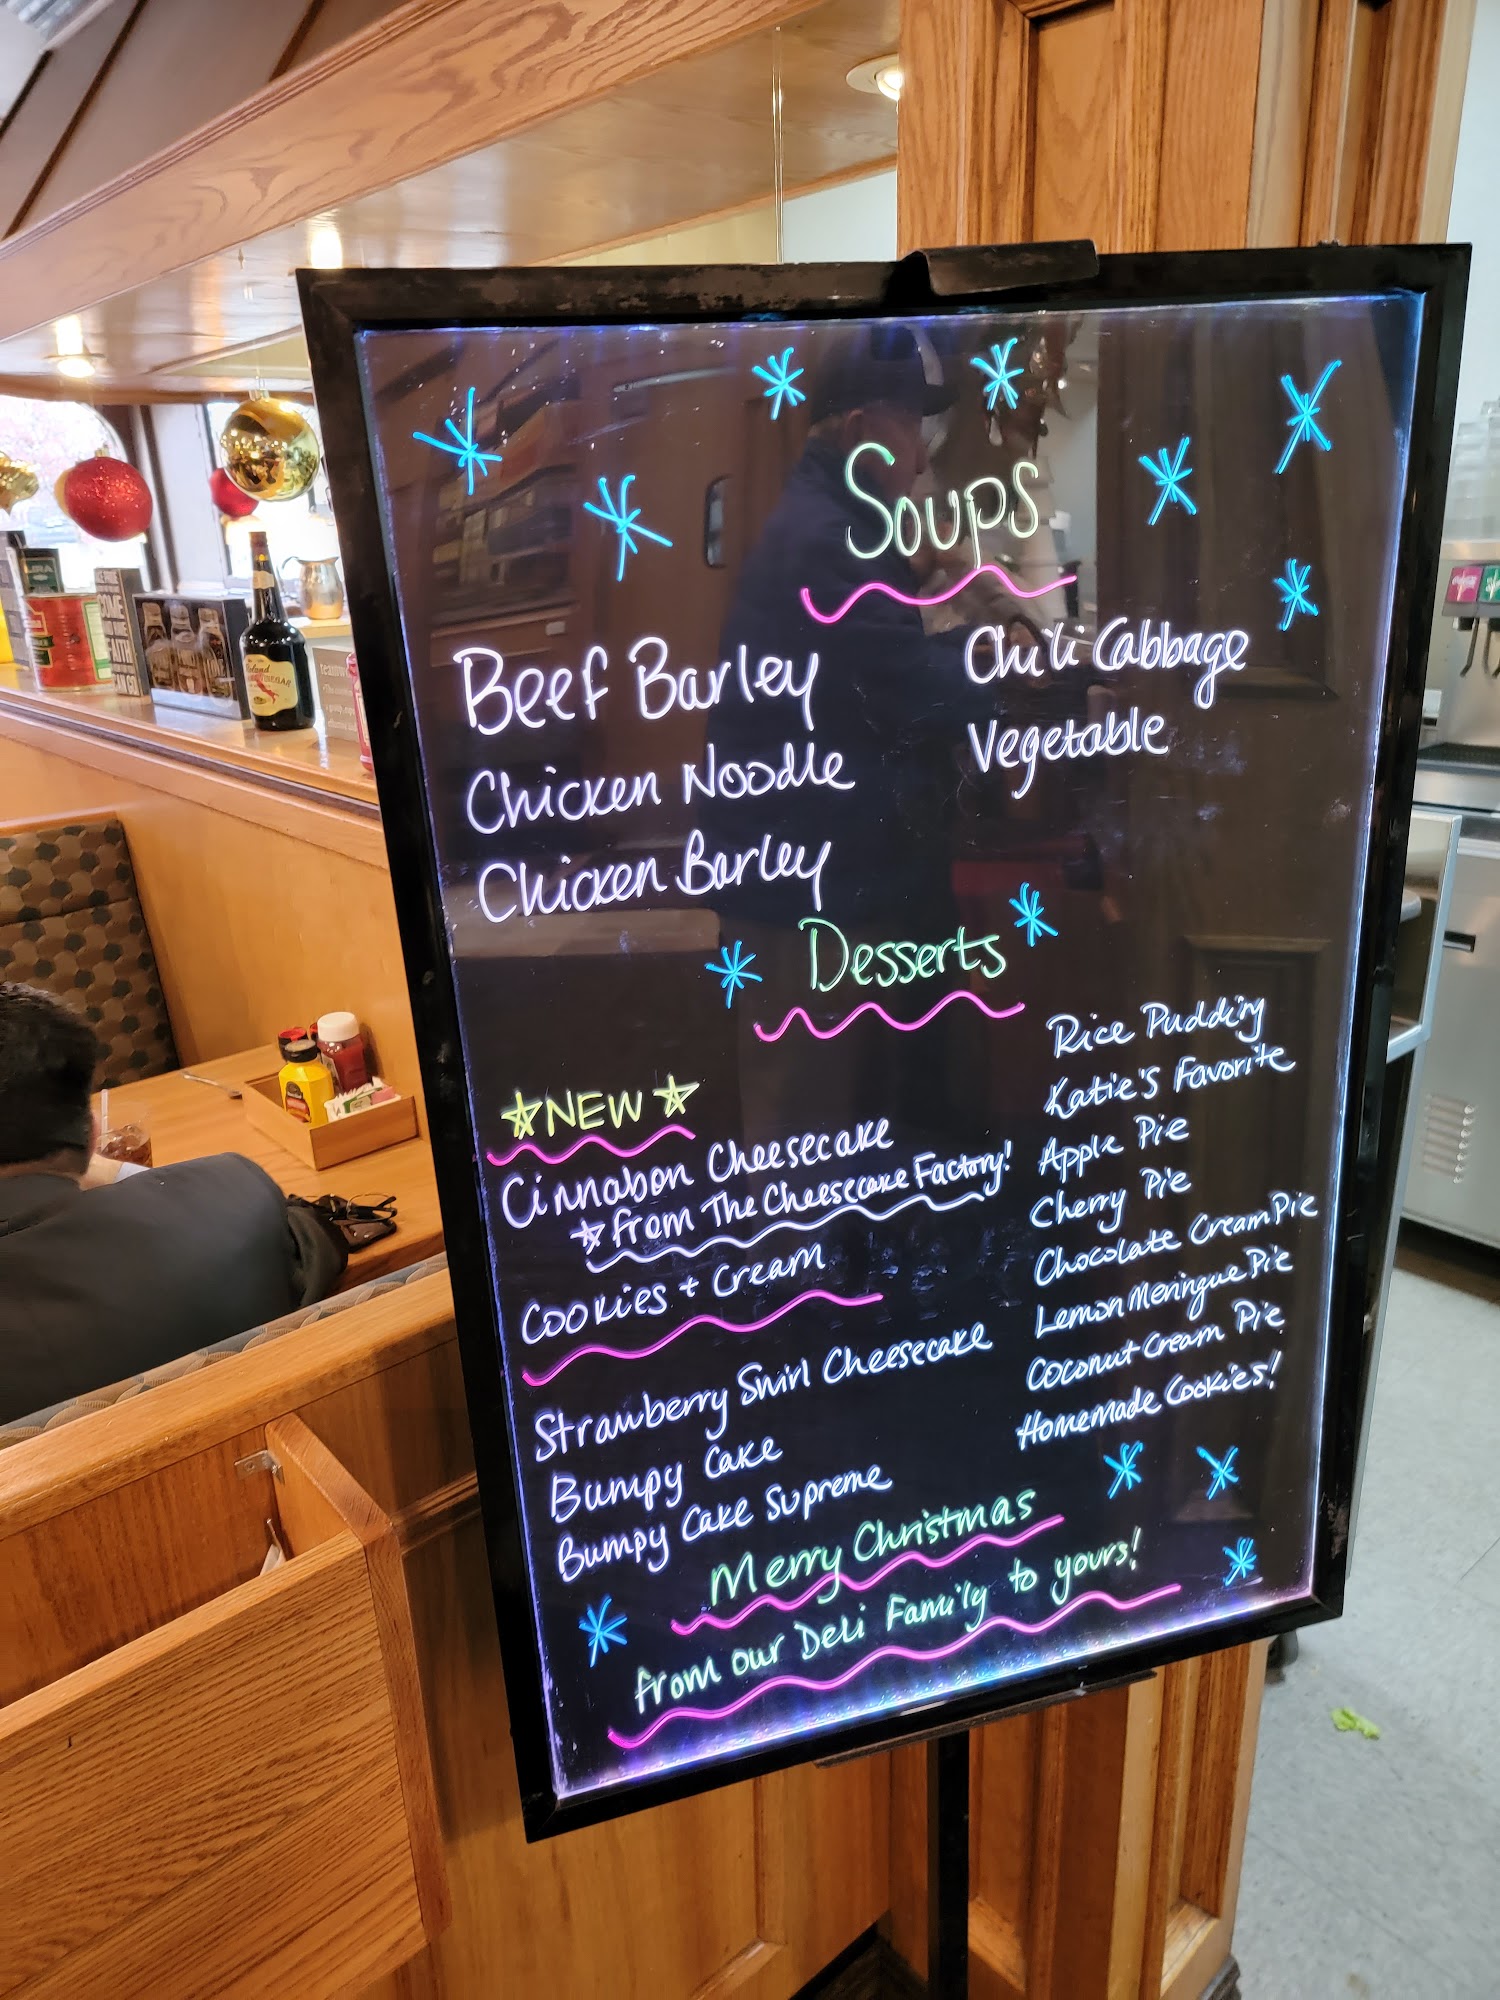 Soups
Beef Barley
Chicken Noodle
Chicken Barley
Chili Cabbage
Vegetable
Desserts
NEW
Cinnabon Cheesecake
from The Cheesecake Factory!
Cookies + Cream
Strawberry Swirl Cheesecake
Bumpy Cake
Bumpy Cake Supreme
Rice Pudding
Katie's Favorite
Apple Pie
Cherry Pie
Chocolate Cream Pie
Lemon Meringue Pie
Coconut Cream Pie
Homemade Cookies!
Merry Christmas
from our Deli Family to yours!